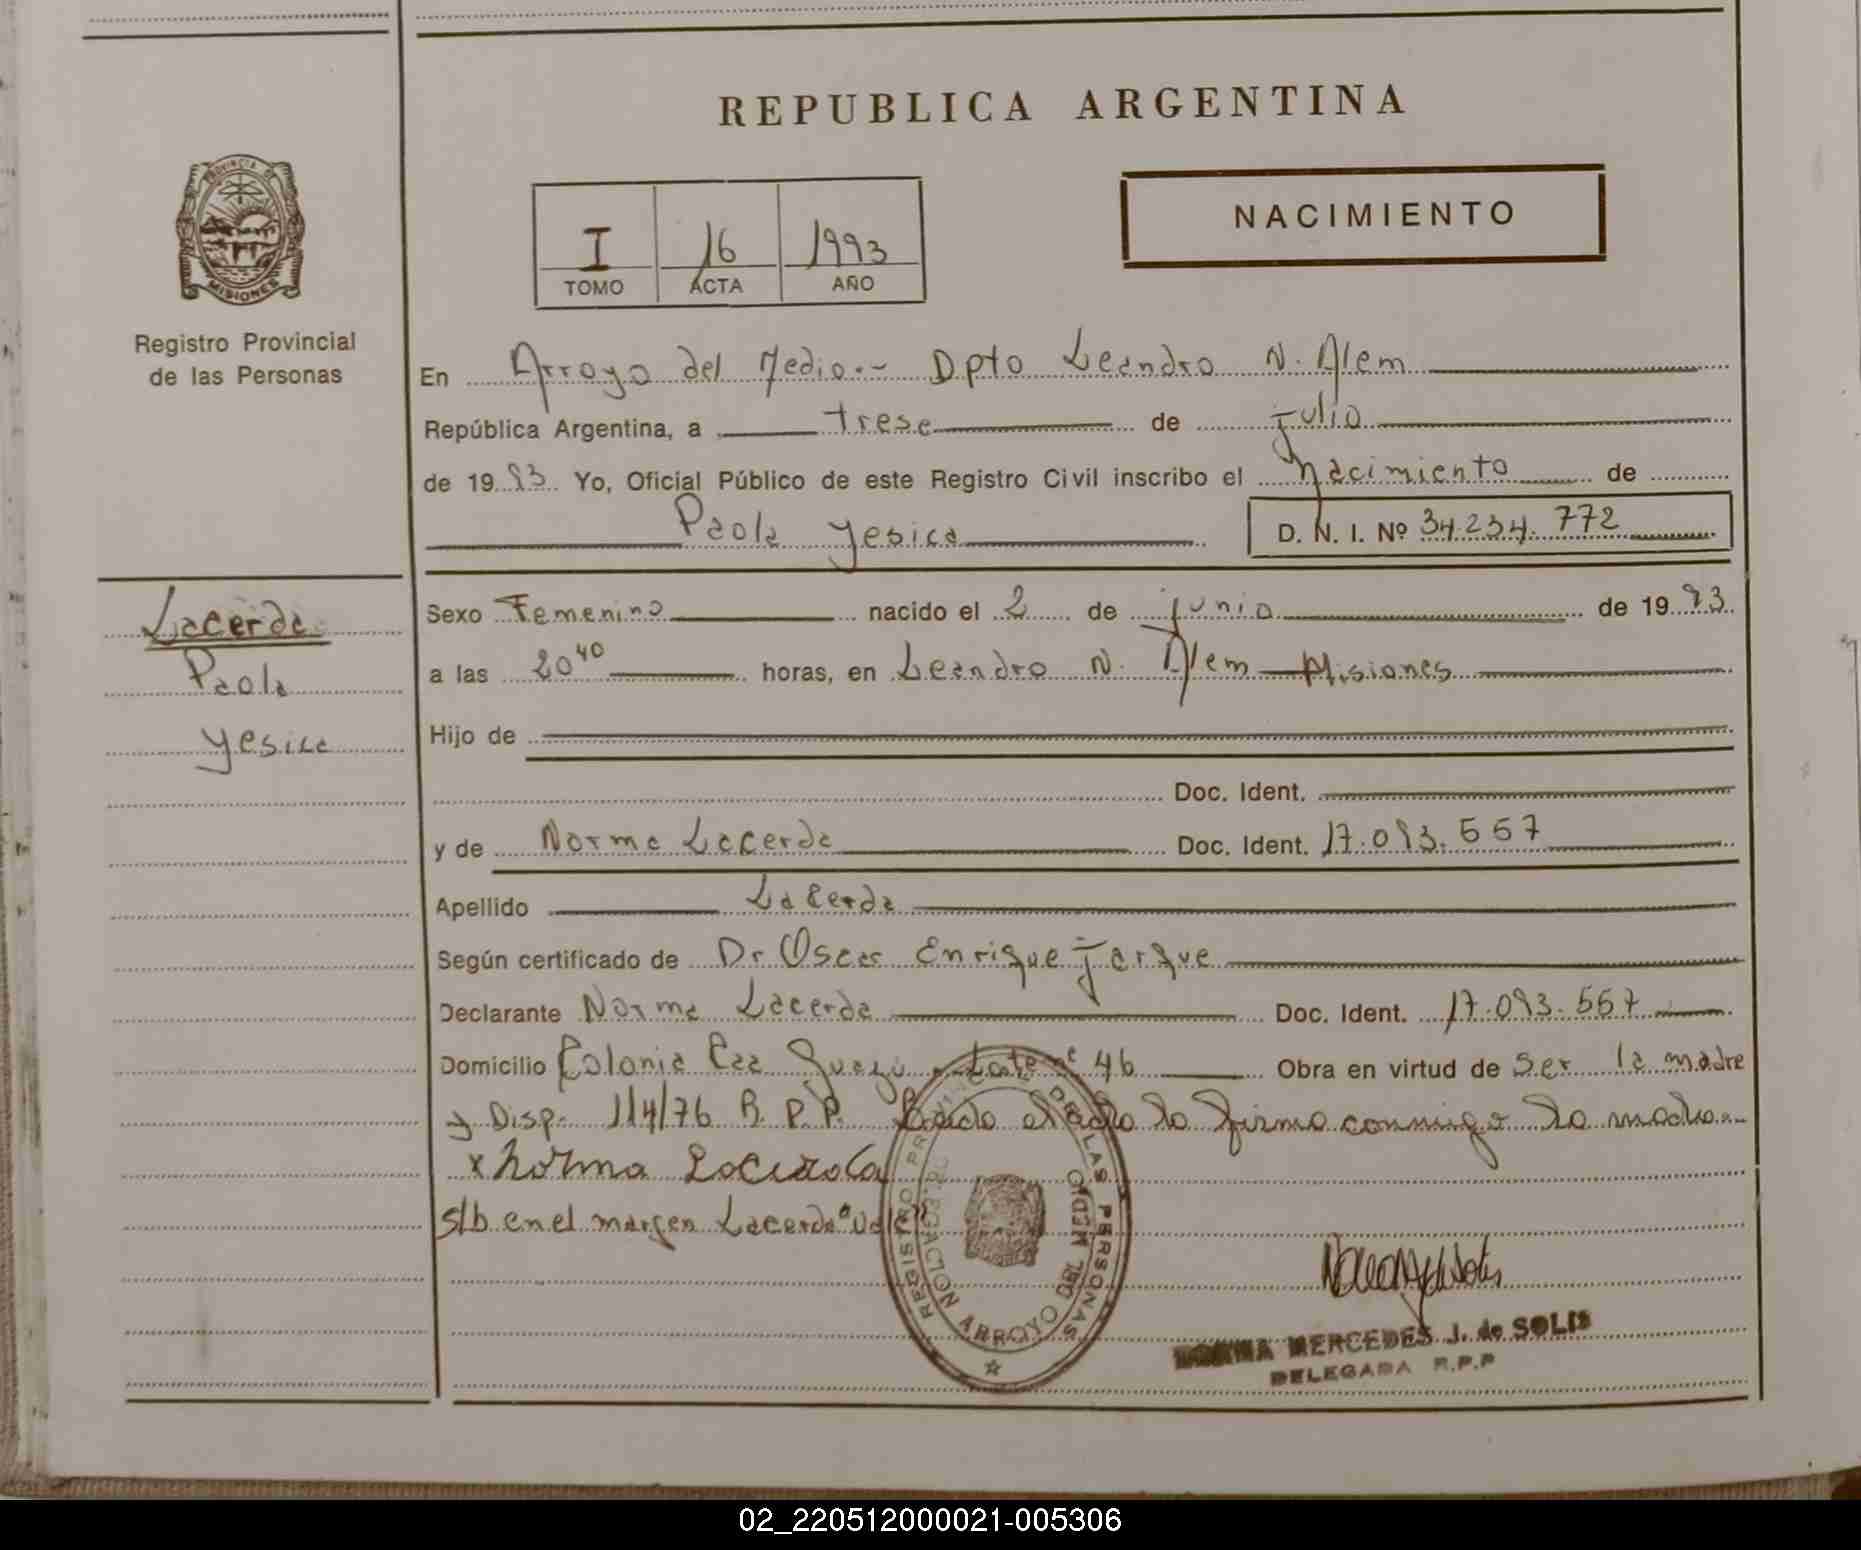 REPUBLICA ARGENTINA
PROVINCIA DE
MISIONES
Registro Provincial
de las Personas
NACIMIENTO
I 16 1993
TOMO ACTA AÑO
En Arroyo del Medio.- Dpto Leandro N. Alem
República Argentina, a trese de julio
de 1993. Yo, Oficial Público de este Registro Civil inscribo el nacimiento de
Paola Yesica D. N. I. Nº 34.234.772
Lacerda
Paola
Yesica
Sexo Femenino nacido el 2 de junio de 1993
a las 20 40 horas, en Leandro N. Alem Misiones
Hijo de
Doc. Ident.
y de Norma Lacerda Doc. Ident. 17.093.557
Apellido Lacerda
Según certificado de Dr Oscar Enrique Jarque
Declarante Norma Lacerda Doc. Ident. 17.093.557
Domicilio Colonia Caa Guazú - Lote nº 46 Obra en virtud de ser la madre
y Disp. 114/76 R.P.P. Leido el acta la firma conmigo la madre.-
x Norma
s/b en el margen Lacerda "Vale"
REGISTRO PROVINCIAL DE LAS PERSONAS
DELEGACION ARROYO DEL MEDIO
MERCEDES J. de SOLIS
DELEGADA R.P.P
02_220512000021-005306